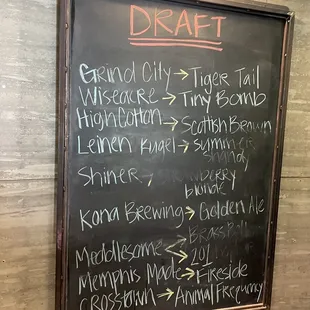 DRAFT
Grind City → Tiger Tail
Wiseacre → Tiny Bomb
High Cotton → Scottish Brown
Leinen Kugel → Summer
Shandy
Shiner
blonde
Kona Brewing → Golden Ale
Meddlesome → Brass
201
Memphis Made → Fireside
Crosstown → Animal Frequency